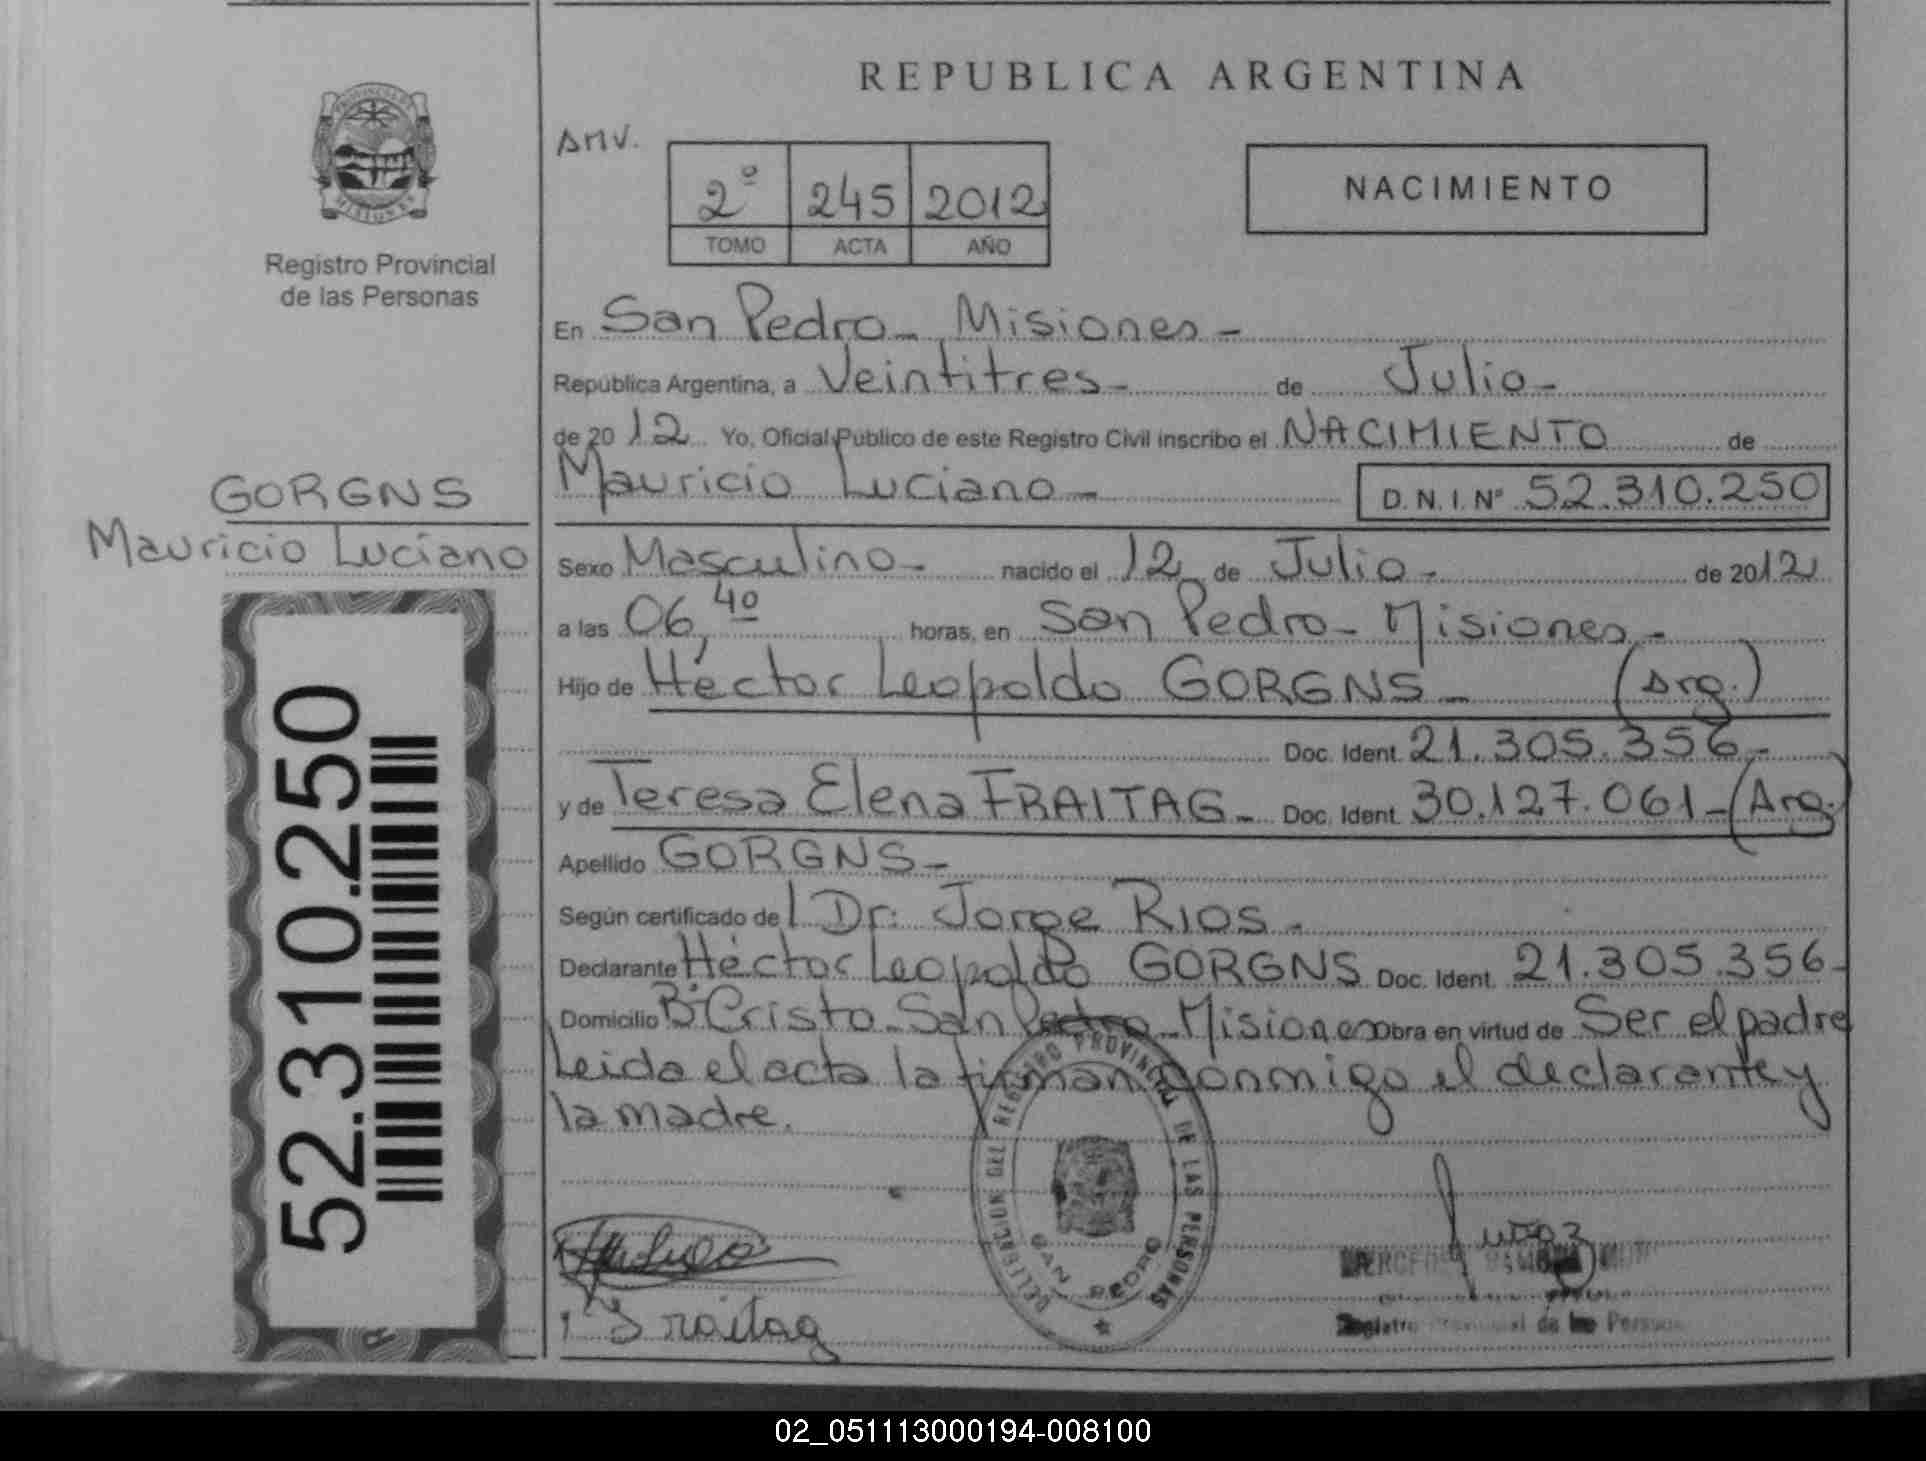 REPUBLICA ARGENTINA
AMV.
2º 245 2012
TOMO ACTA AÑO
NACIMIENTO
PROVINCIA DE MISIONES
Registro Provincial
de las Personas
GORGNS
Mauricio Luciano
52.310.250
En San Pedro - Misiones -
República Argentina, a Veintitres - de Julio -
de 2012 Yo, Oficial Público de este Registro Civil inscribo el NACIMIENTO de
Mauricio Luciano - D.N.I. Nº 52.310.250
Sexo Masculino - nacido el 12 de Julio - de 2012
a las 06,40 horas, en San Pedro - Misiones -
Hijo de Héctor Leopoldo GORGNS - (Arg.)
Doc. Ident. 21.305.356 -
y de Teresa Elena FRAITAG - Doc. Ident. 30.127.061 - (Arg.)
Apellido GORGNS -
Según certificado del Dr: Jorge RIOS -
Declarante Héctor Leopoldo GORGNS Doc. Ident. 21.305.356 -
Domicilio Bº Cristo - San Pedro - Misiones obra en virtud de Ser el padre
Leida el acta la firman conmigo el declarante y
la madre.
DELEGACION DEL REGISTRO PROVINCIAL DE LAS PERSONAS
SAN PEDRO
Fraitag
Registro Provincial de las Personas
02_051113000194-008100